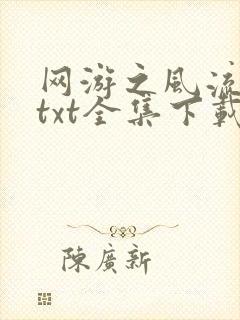 网游之风流
txt全集下載
陳廣新